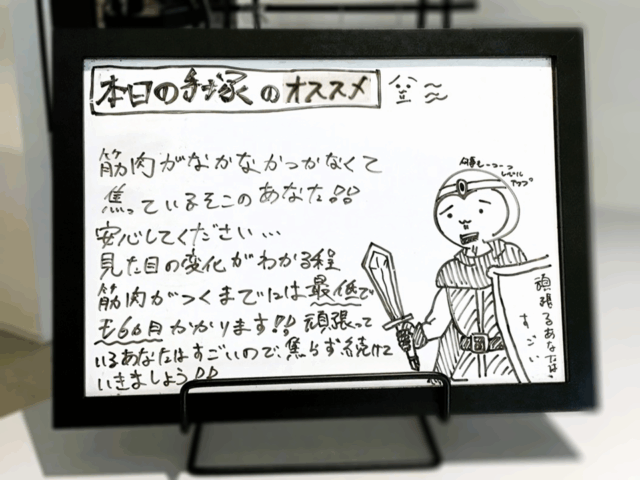 本日の手塚のオススメ
筋肉がなかなかつかなくて
焦っているそこのあなた!!
安心してください...
見た目の変化がわかる程
筋肉がつくまでには最低で
も6ヵ月かかります!! 頑張って
いるあなたはすごいので、焦らず続けて
いきましょう!!
レベル
アップ
頑張るあなたは
すごい